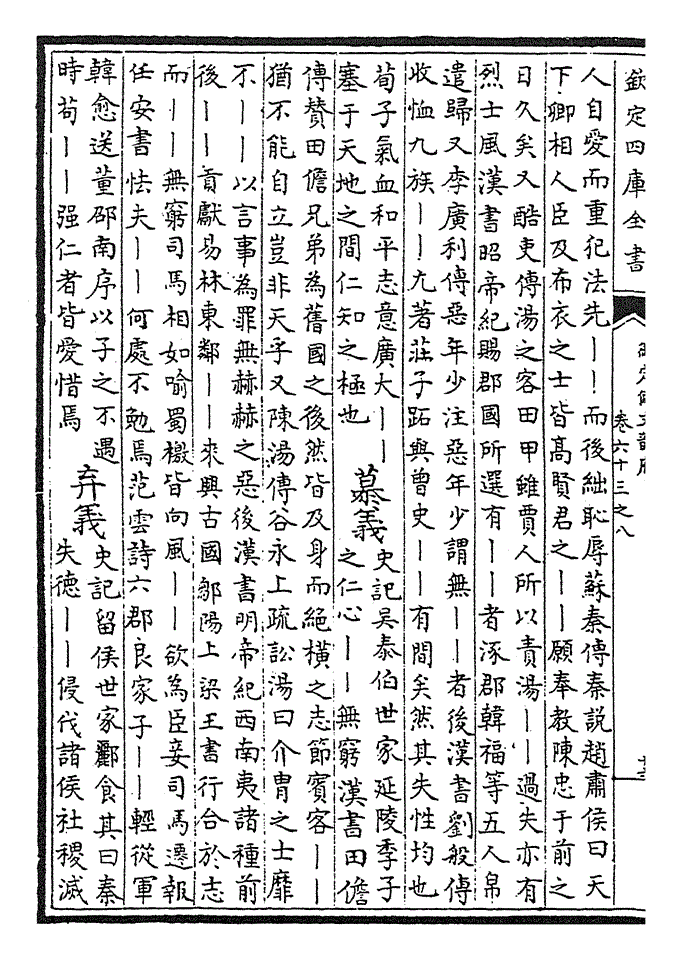 欽定四庫全書
卷六十三之八
人自愛而重犯法先丨丨而後絀恥辱蘇秦傳秦說趙肅侯曰天
下卿相人臣及布衣之士皆高賢君之丨丨願奉教陳忠于前之
日久矣又酷吏傳湯之客田甲雖賈人所以責湯丨丨過失亦有
烈士風漢書昭帝紀賜郡國所選有丨丨者涿郡韓福等五人帛
遣歸又李廣利傳惡年少注惡年少謂無丨丨者後漢書劉般傳
收恤九族丨丨尤著莊子跖與曾史丨丨有間矣然其失性均也
荀子氣血和平志意廣大丨丨
塞于天地之間仁知之極也
慕義
史記吳泰伯世家延陵季子
之仁心丨丨無窮漢書田儋
傳贊田儋兄弟為舊國之後然皆及身而絕橫之志節賓客丨丨
猶不能自立豈非天乎又陳湯傳谷永上疏訟湯曰介胄之士靡
不丨丨以言事為罪無赫赫之惡後漢書明帝紀西南夷諸種前
後丨丨貢獻易林東鄰丨丨來興古國鄒陽上梁王書行合於志
而丨丨無窮司馬相如喻蜀檄皆向風丨丨欲為臣妾司馬遷報
任安書怯夫丨丨何處不勉焉范雲詩六郡良家子丨丨輕從軍
韓愈送董邵南序以子之不遇
時苟丨丨强仁者皆愛惜焉
弃義
史記留侯世家酈食其曰秦
失德丨丨侵伐諸侯社稷滅